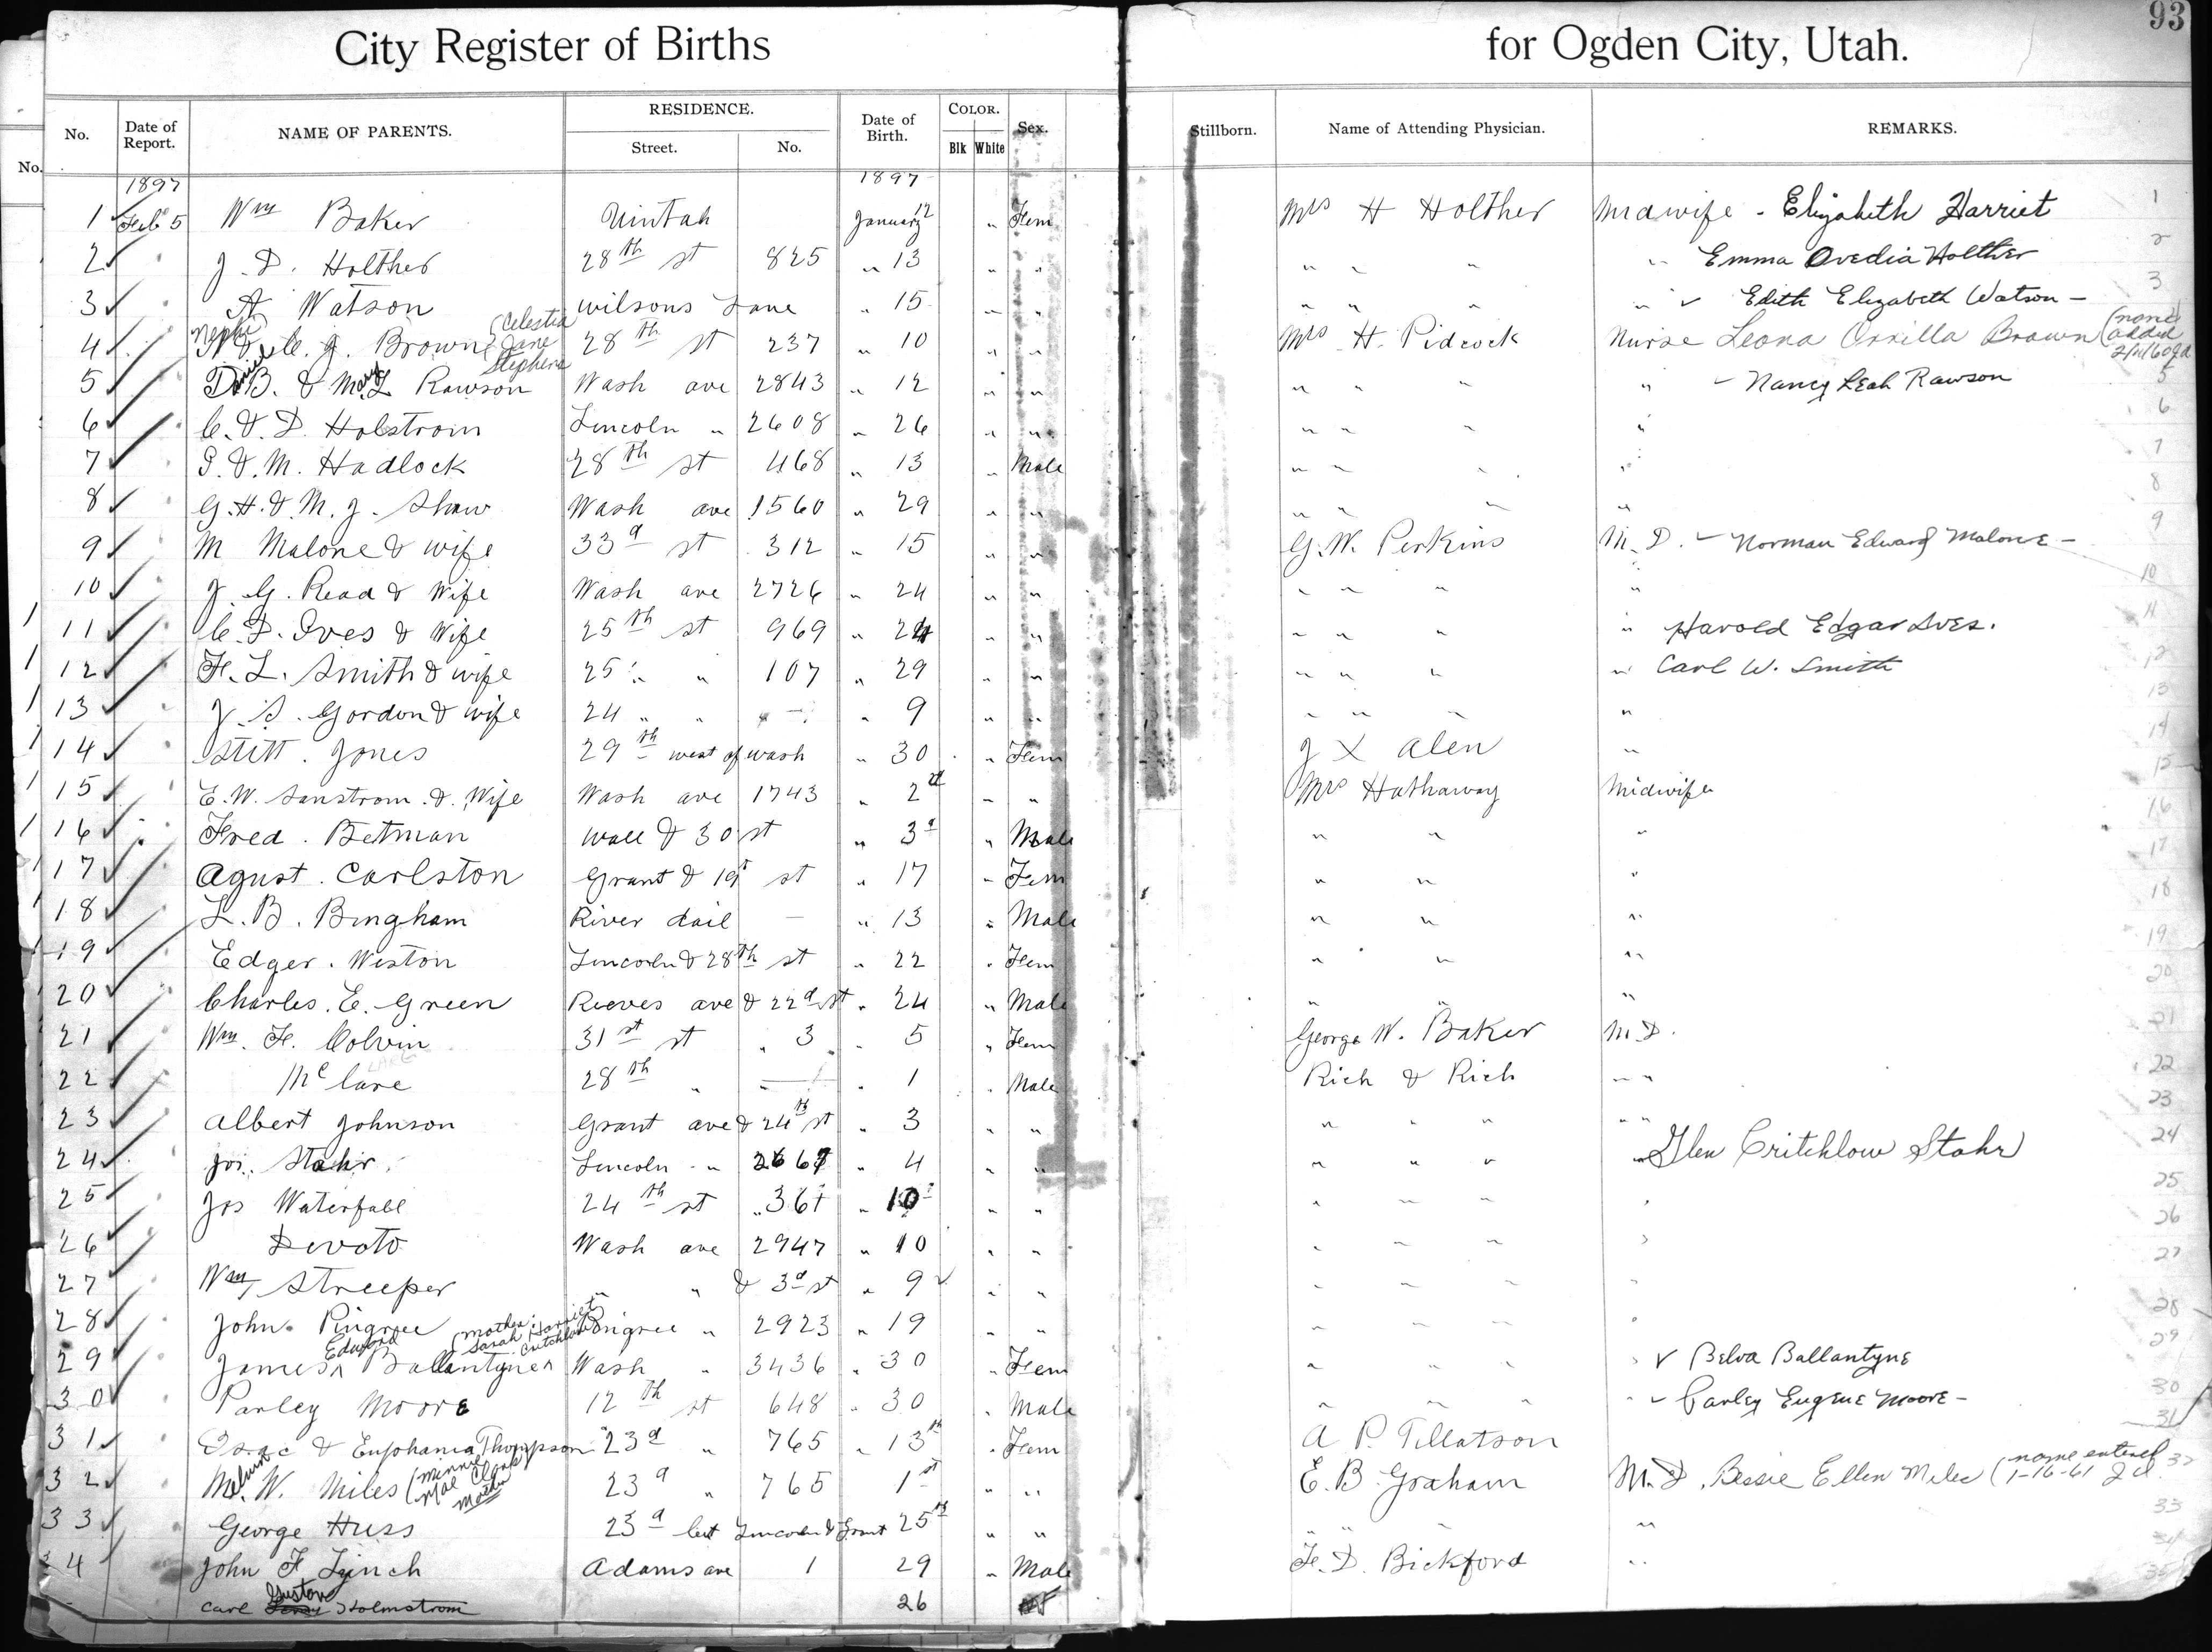 City Register of Births for Ogden City, Utah. 93
No. Date of Report. NAME OF PARENTS. RESIDENCE. Street. No. Date of Birth. COLOR. Blk White Sex. Stillborn. Name of Attending Physician. REMARKS.
No.
1897 1897
1 Feb 5 Wm Baker Uintah January 12 " Fem Mrs H Holther Midwife - Elizabeth Harriet 1
2 J. D. Holther 28th st 825 " 13 " " " " " " Emma Ovedia Holther 2
3 A Watson Wilsons Lane " 15 " " " " " " Edith Elizabeth Watson - 3
4 Nephi & C. J. Brown (Celestia Jane Stephens 28th st 237 " 10 " " Mrs H. Pidcock Nurse Leona Orrilla Brown (name added
5 Daniel B. & Mary L Rawson Wash ave 2843 " 12 " " " " " " - Nancy Leah Rawson 5
6 C. & D. Holstrom Lincoln " 2608 " 26 " " " " " " 6
7 S. & M. Hadlock 28th st 468 " 13 " Male " " " " 7
8 G. H. & M. J. Shaw Wash ave 1560 " 29 " " " " " " 8
9 M Malone & wife 33d st 312 " 15 " " G. W. Perkins M. D. - Norman Edward Malone - 9
10 J. G. Read & Wife Wash ave 2726 " 24 " " " " " " 10
1 11 C. D. Ives & Wife 25th st 969 " 24 " " " " " " Harold Edgar Ives. 11
1 12 F. L. Smith & wife 25 " " 107 " 29 " " " " " " Carl W. Smith 12
1 13 J. S. Gordon & wife 24 " " " - " 9 " " " " " " 13
1 14 Stitt. Jones 29th west of wash " 30 " Fem J X Alen " 14
1 15 E. W. Sanstrom & Wife Wash ave 1743 " 2d " " Mrs Hathaway Midwife 15
1 16 Fred. Betman Wall & 30 st " 3d " Male " " " 16
1 17 Agust. Carlston Grant & 19t st " 17 " Fem " " " 17
1 18 L. B. Bingham River dail - " 13 " Male " " " 18
1 19 Edger. Weston Lincoln & 28th st " 22 " Fem " " " 19
20 Charles. E. Green Reeves ave & 22d st " 24 " Male " " " 20
21 Wm. F. Colvin 31st st " 3 " 5 " Fem George W. Baker M. D. 21
22 Mc lane 28th " " - " 1 " Male Rich & Rich " " 22
23 Albert Johnson Grant ave & 24th st " 3 " " " " " " " 23
24 Jos. Stahr Lincoln " 2667 " 4 " " " " " " Glen Critchlow Stahr 24
25 Jos Waterfall 24th st " 361 " 10 " " " " " " 25
26 Devoto Wash ave 2947 " 10 " " " " " " 26
27 Wm, Streeper " " & 3d st " 9 " " " " " " 27
28 John. Pingree Pingree " 2923 " 19 " " " " " " 28
29 James Edward Ballantyne (Mother: Sarah Harriet Critchlow) Wash " 3436 " 30 " Fem " " " " Belva Ballantyne 29
30 Parley Moore 12th st 648 " 30 " Male " " " " - Parley Eugene Moore - 30
31 Isaac & Euphamia Thompson 23d " 765 " 13th " Fem A P. Tillotson 31
32 Melvin W. Miles (Minnie Mae Clark Mother 23d " 765 1st " " E. B Graham M. D. Bessie Ellen Miles (name entered 1-16-61 32
33 George Huss 23d bet Lincoln & Grant 25th " " " " " " 33
34 John F Lynch Adams ave 1 29 " Male F. D. Bickford " 34
Carl Gustav Holmstrom 26 35